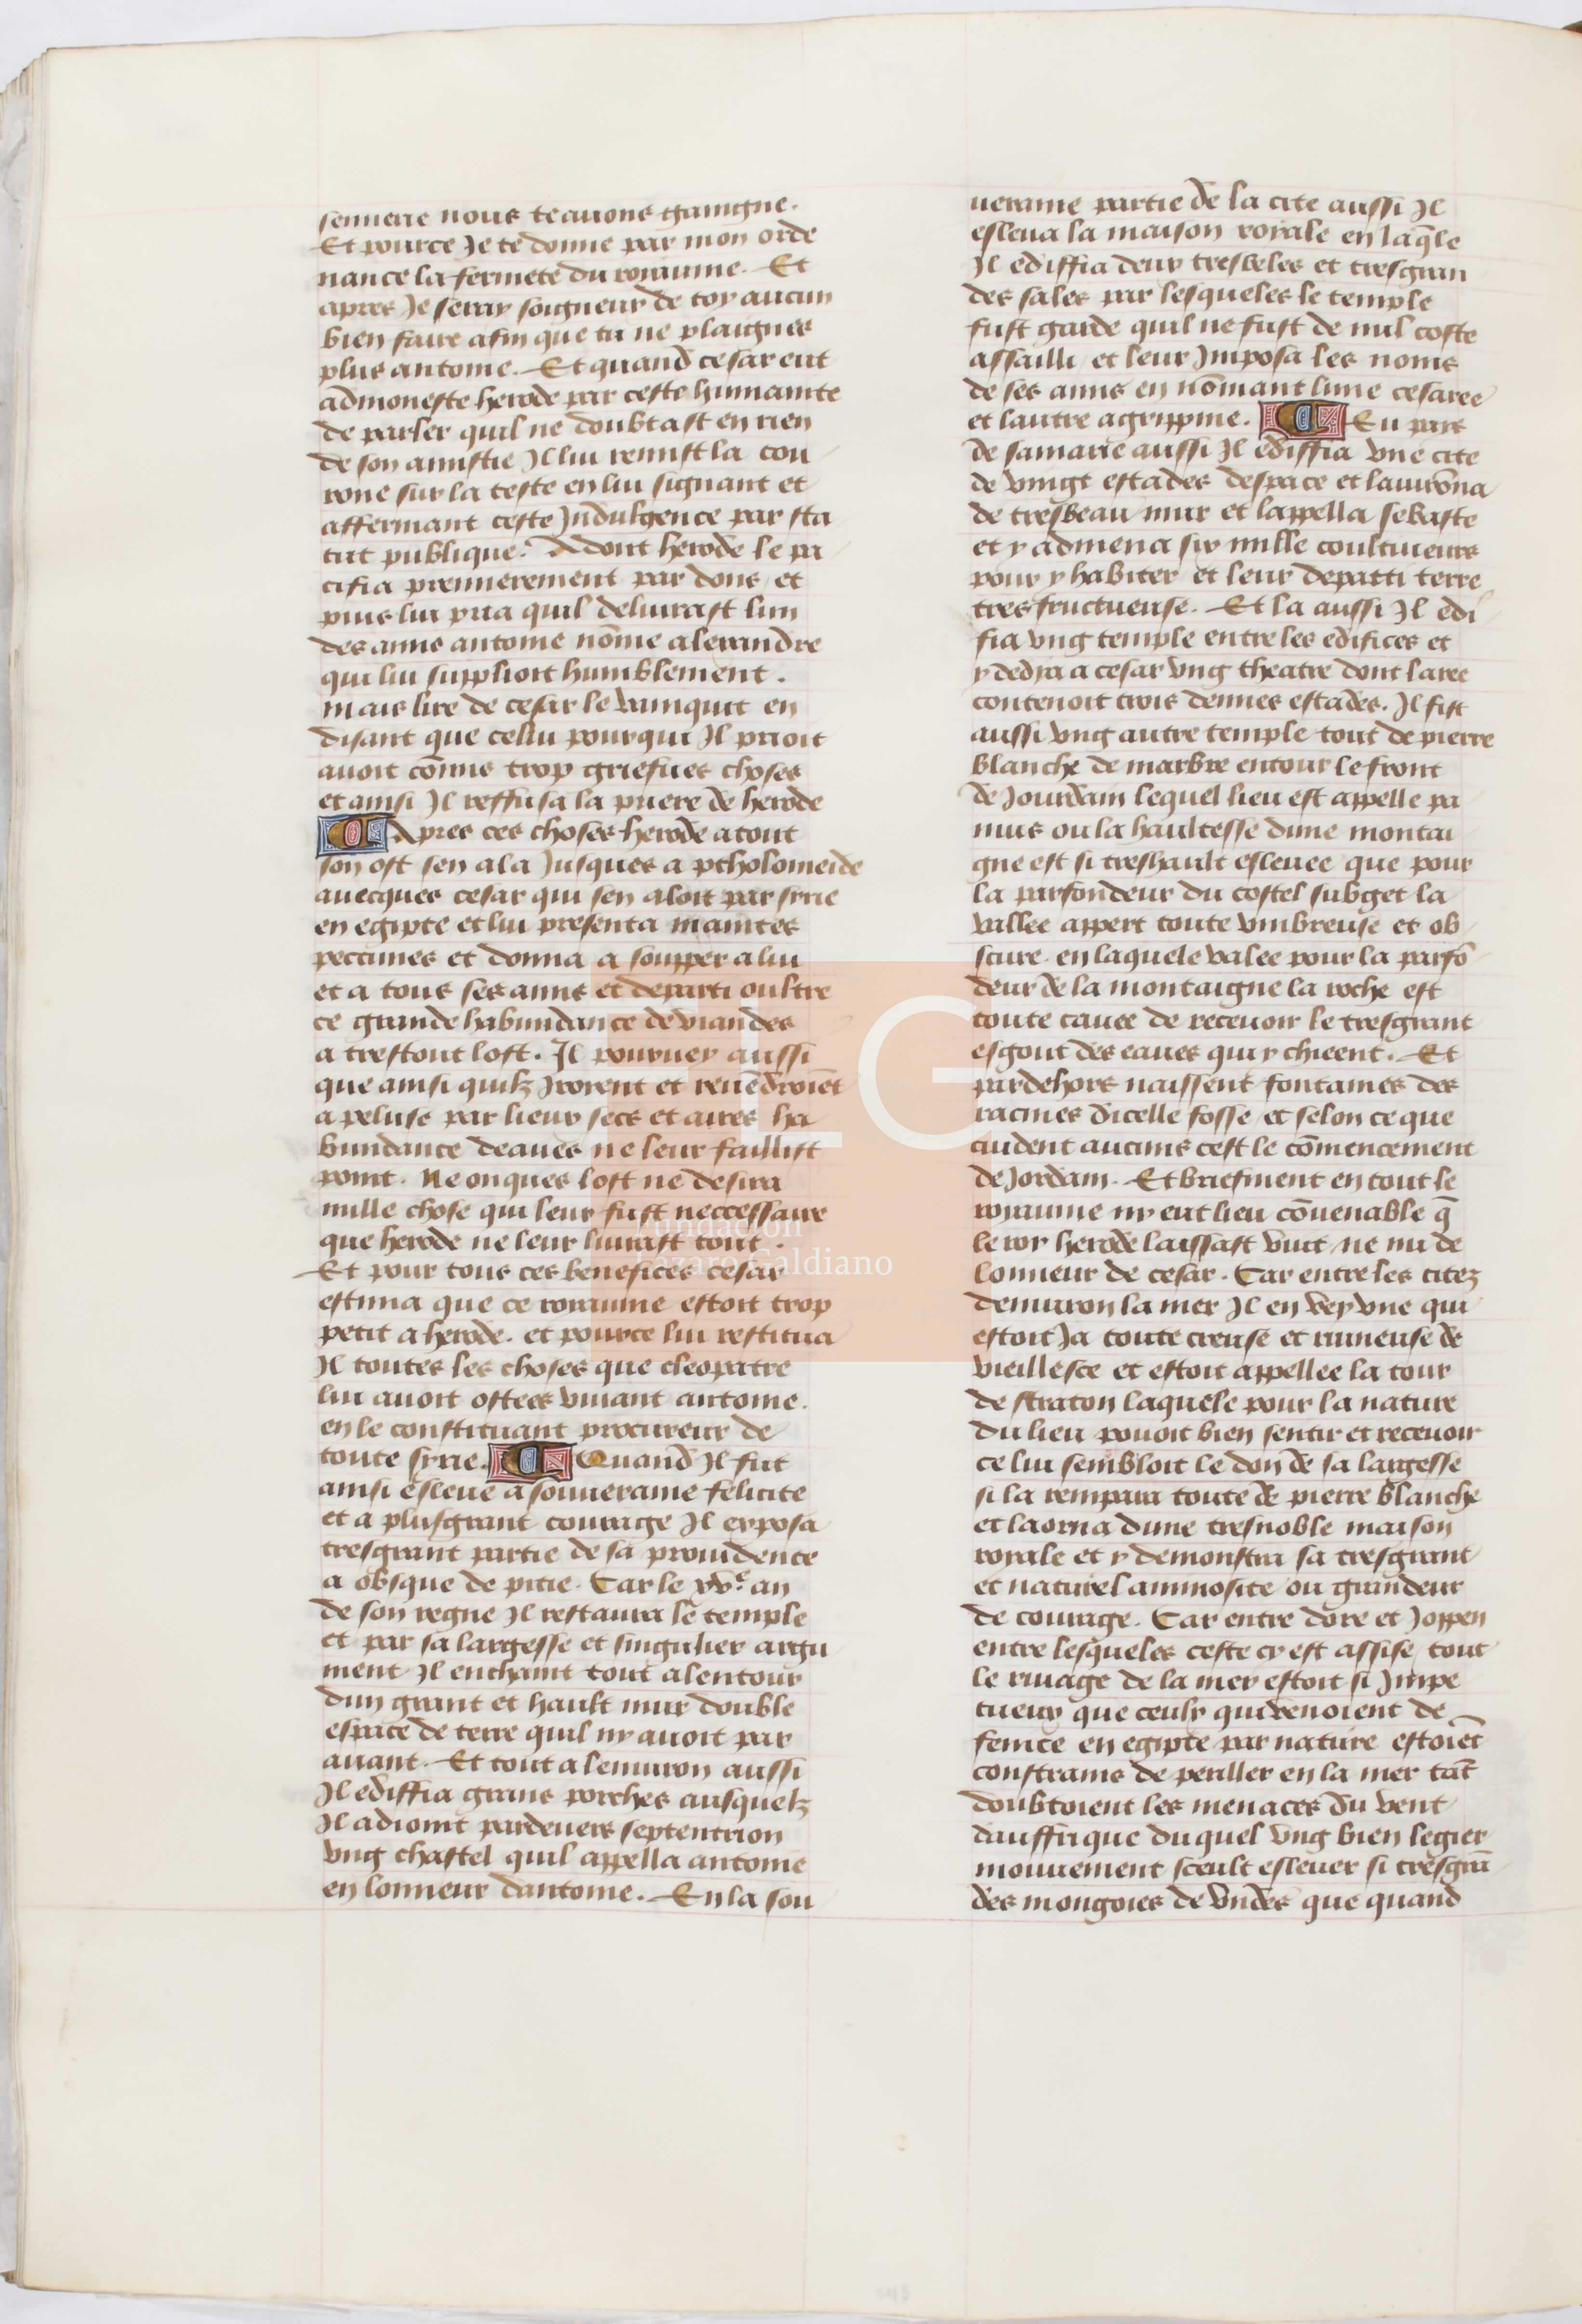 sennerie nous te auons gaingne.
Et pource Je te donne par mon orde
nance la fermete du roiaume. Et
apres Je seray soigneux de toy aucun
bien faire afin que tu ne plaignes
plus antoine. Et quand cesar eut
admoneste herode par ceste humanite
de parler quil ne doubtast en rien
de son amistie Il lui remist la cou
rone sur la teste en lui signant et
affermant ceste Indulgence par sta
tut publique. Adont herode le pa
cifia premierement par dons et
puis lui pria quil deliurast lun
des amis antoine nōme alexandre
qui lui supplioit humblement.
mais lire de cesar le vainquit en
disant que cellui pourqui Il prioit
auoit cōmis trop griefues choses
et ainsi Il reffusa la priere de herode
Apres ces choses herode a tout
son ost sen ala Jusques a ptholomeide
auecques cesar qui sen aloit par sirie
en egipte et lui presenta maintes
peccunes et donna a soupper a lui
et a tous ses amis et departi oultre
ce grande habundance de viandes
a trestout lost. Il pourueÿ aussi
que ainsi quilz yroient et reuēdroiēt
a peluse par lieux secs et aires ha
bundance deaues ne leur faillist
point. Ne onques lost ne desira
nulle chose qui leur fust neccessaire
que herode ne leur liurast tout.
Et pour tous ces benefices cesar
estima que ce roiaume estoit trop
petit a herode. et pource lui restitua
Il toutes les choses que cleopatre
lui auoit ostees viuant antoine.
en le constituant procureur de
toute sirie. Quand Il fut
ainsi esleue a souueraine felicite
et a plusgrant courage Il exposa
tresgrant partie de sa prouidence
a obsque de pitie. Car le xv.e an
de son regne Il restaura le temple
et par sa largesse et singulier argu
ment Il enchaint tout alentour
dun grant et hault mur double
espace de terre quil ny auoit par
auant. Et tout a lenuiron aussi
Il ediffia grans porches ausquelz
Il adioint pardeuers septentrion
vng chastel quil appella antoine
en lonneur dantoine. En la sou
ueraine partie de la cite aussi Il
esleua la maison royale en laq̄le
Il ediffia deux tresbeles et tresgran
des sales par lesqueles le temple
fust garde quil ne fust de nul coste
assailli et leur Imposa les noms
de ses amis en nōmant lune cesaree
et lautre agrippine. Eu pays
de samarie aussi Il ediffia vne cite
de vingt estades despace et lauirōna
de tresbeau mur et lappella sebaste
et y admena six mille coultiueurs
pour y habiter et leur departi terre
tresfructueuse. Et la aussi Il edi
fia vng temple entre les edifices et
y dedya a cesar vng theatre dont laree
contenoit trois demies estades. Il fist
aussi vng autre temple tout de pierre
blanche de marbre entour le front
de Jourdain lequel lieu est appelle pa
nius ou la haultesse dune montai
gne est si treshault esleuee que pour
la parfondeur du costel subget la
vallee appert toute vmbreuse et ob
scure. en laquele valee pour la parfō
deur de la montaigne la roche est
toute cauee de receuoir le tresgrant
esgout des eaues qui y chieent. Et
pardehors naissent fontaines des
racines dicelle fosse et selon ce que
cuident aucuns cest le cōmencement
de Jordain. Et briefment en tout le
roiaume ny eut lieu cōuenable q̄
le roy herode laissast vuit ne nu de
lonneur de cesar. Car entre les citez
denuiron la mer Il en veÿ vne qui
estoit Ja toute creuse et ruineuse de
vieillesce et estoit appellee la tour
de straton laquele pour la nature
du lieu pouoit bien sentir et receuoir
ce lui sembloit le don de sa largesse
si la rempara toute de pierre blanche
et laorna dune tresnoble maison
royale et y demonstra sa tresgrant
et naturel animosite ou grandeur
de courage. Car entre dore et Joppen
entre lesqueles ceste cy est assise tout
le riuage de la mer estoit si Impe
tueux que ceulx qui venoient de
fenice en egipte par nature estoiēt
constrains de periller en la mer tāt
doubtoient les menaces du vent
dauffrique duquel vng bien legier
mouuement sceult esleuer si tresgrā
des mongoies de vndes que quand